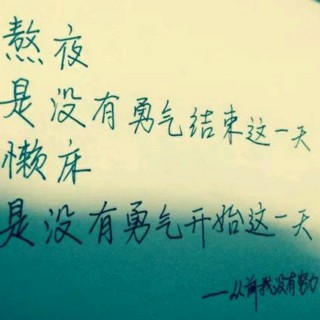 熬夜
是没有勇气结束这一天
懒床
是没有勇气开始这一天
——从前我没有努力